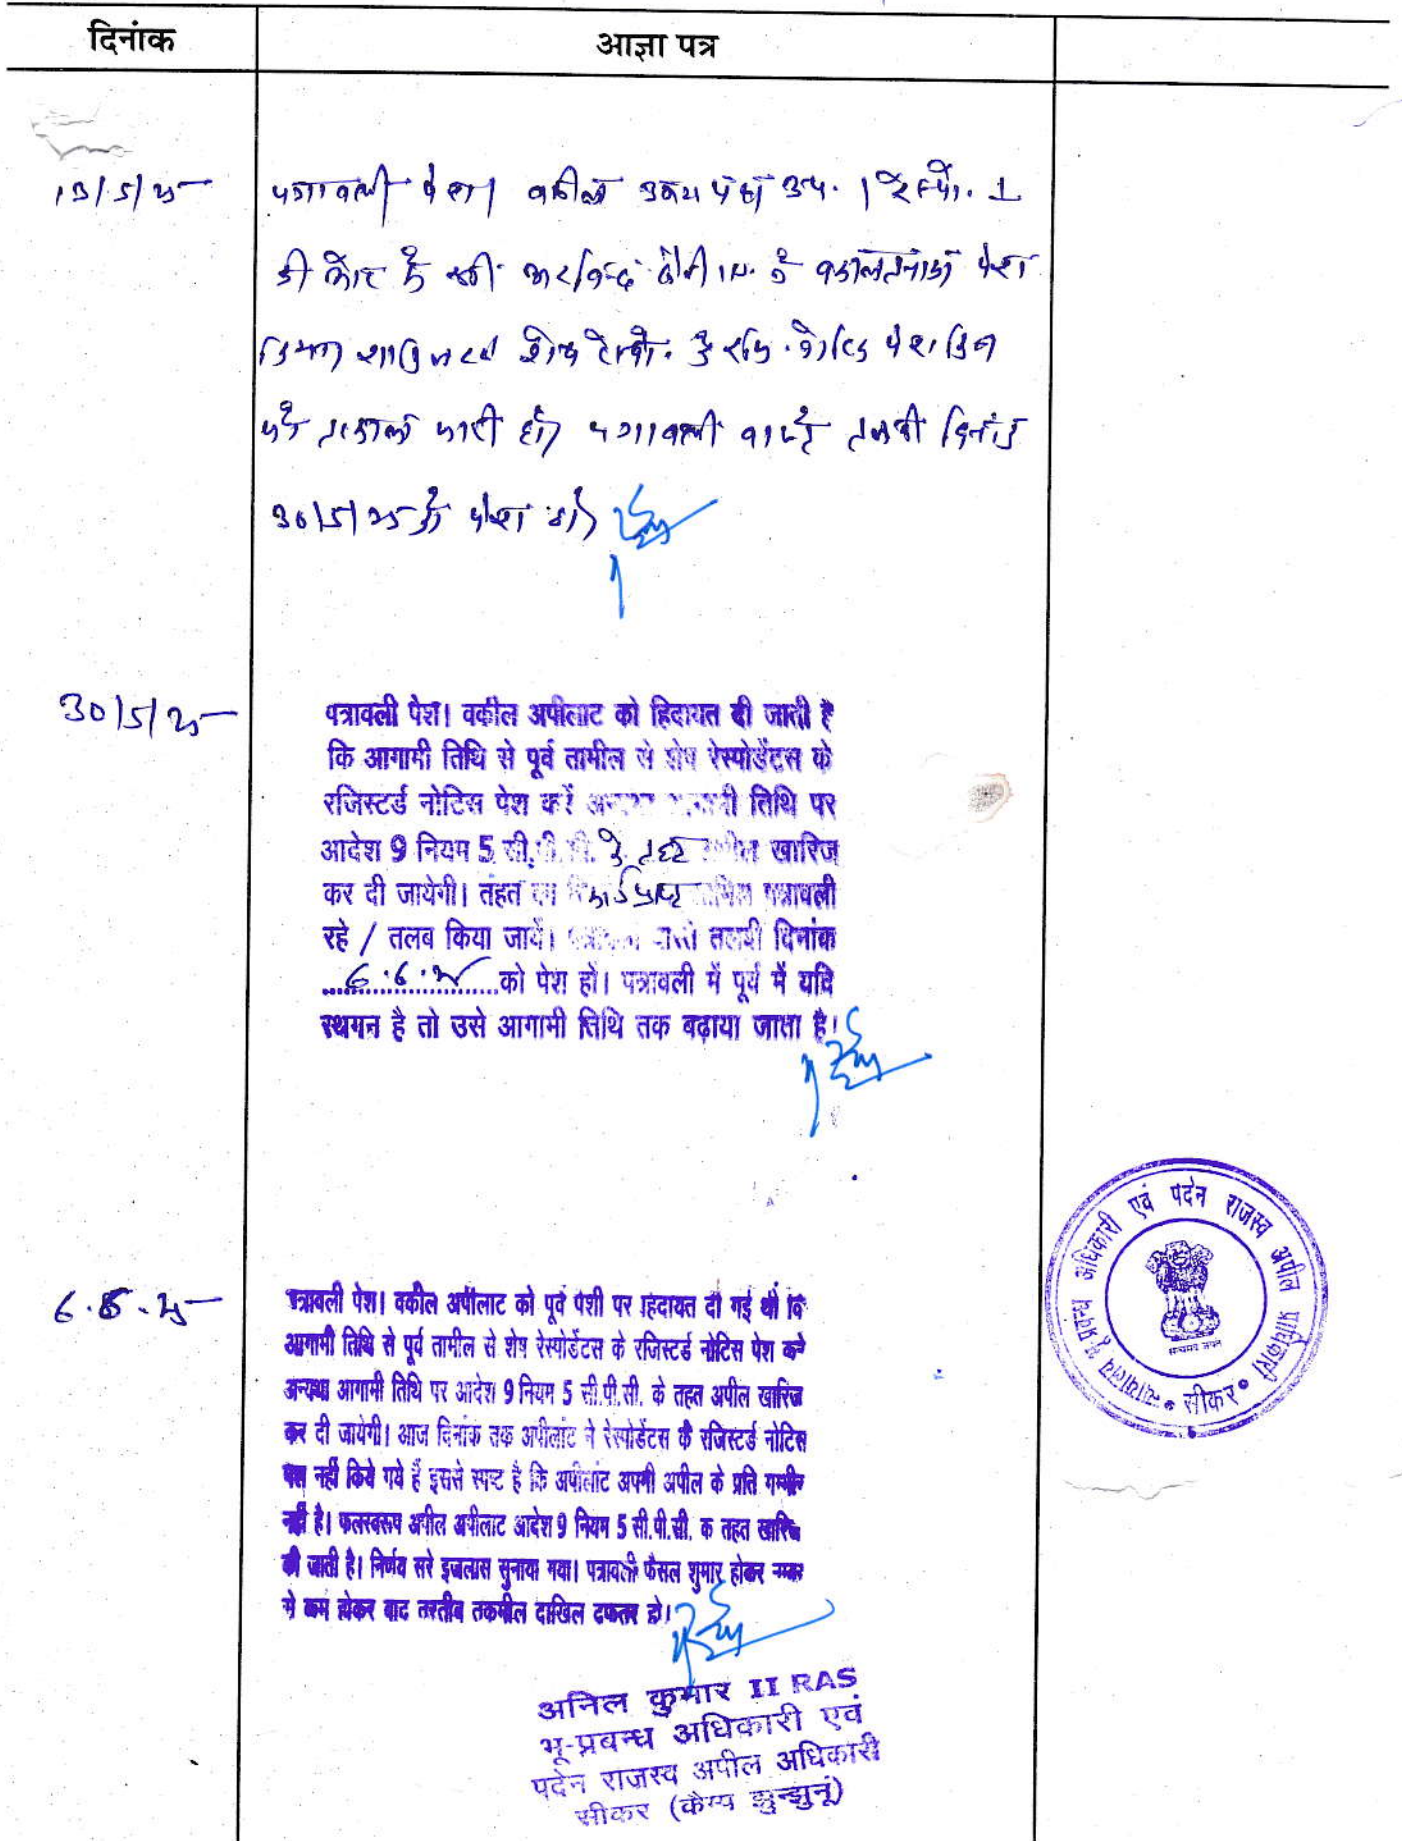 दिनांक
आज्ञा पत्र
13/5/25
पत्रावली पेश। वकील उभय पक्ष उप.। रेस्पो. 1
की ओर से श्री अरविन्द सैनी ने वकालतनामा पेश
किया शामिल रहे शेष रेस्पो. के रजि. नोटिस पेश
तत्काल जारी हो। पत्रावली वास्ते तलबी दिनांक
30/5/25 को पेश हो।
30/5/25
पत्रावली पेश। वकील अपीलाट को हिदायत दी जाती है
कि आगामी तिथि से पूर्व तामील से शेष रेस्पोडेंटस के
रजिस्टर्ड नोटिस पेश करें अन्यथा आगामी तिथि पर
आदेश 9 नियम 5 सी.पी.सी. के तहत अपील खारिज
कर दी जायेगी। तहत का रिकार्ड प्राप्त शामिल पत्रावली
रहे / तलब किया जावें। पत्रावली वास्ते तलबी दिनांक
6.6.25 को पेश हो। पत्रावली में पूर्व में यदि
स्थगन है तो उसे आगामी तिथि तक बढ़ाया जाता है।
6.6.25
पत्रावली पेश। वकील अपीलाट को पूर्व पेशी पर हिदायत दी गई थी कि
आगामी तिथि से पूर्व तामील से शेष रेस्पोडेंटस के रजिस्टर्ड नोटिस पेश करें
अन्यथा आगामी तिथि पर आदेश 9 नियम 5 सी.पी.सी. के तहत अपील खारिज
कर दी जायेगी। आज दिनांक तक अपीलांट ने रेस्पोडेंटस के रजिस्टर्ड नोटिस
पेश नहीं किये गये हैं इससे स्पष्ट है कि अपीलांट अपनी अपील के प्रति गम्भीर
नहीं है। फलस्वरूप अपील अपीलाट आदेश 9 नियम 5 सी.पी.सी. के तहत खारिज
की जाती है। निर्णय सरे इजलास सुनाया गया। पत्रावली फैसल शुमार होकर नम्बर
से कम होकर बाद तरतीब तकमील दाखिल दफ्तर हो।
अनिल कुमार II RAS
भू-प्रबन्ध अधिकारी एवं
पदेन राजस्व अपील अधिकारी
सीकर (कैम्प झुन्झुनूं)
न्यायालय भू प्रबन्ध अधिकारी एवं पदेन राजस्व अपील प्राधिकारी
सीकर
सत्यमेव जयते